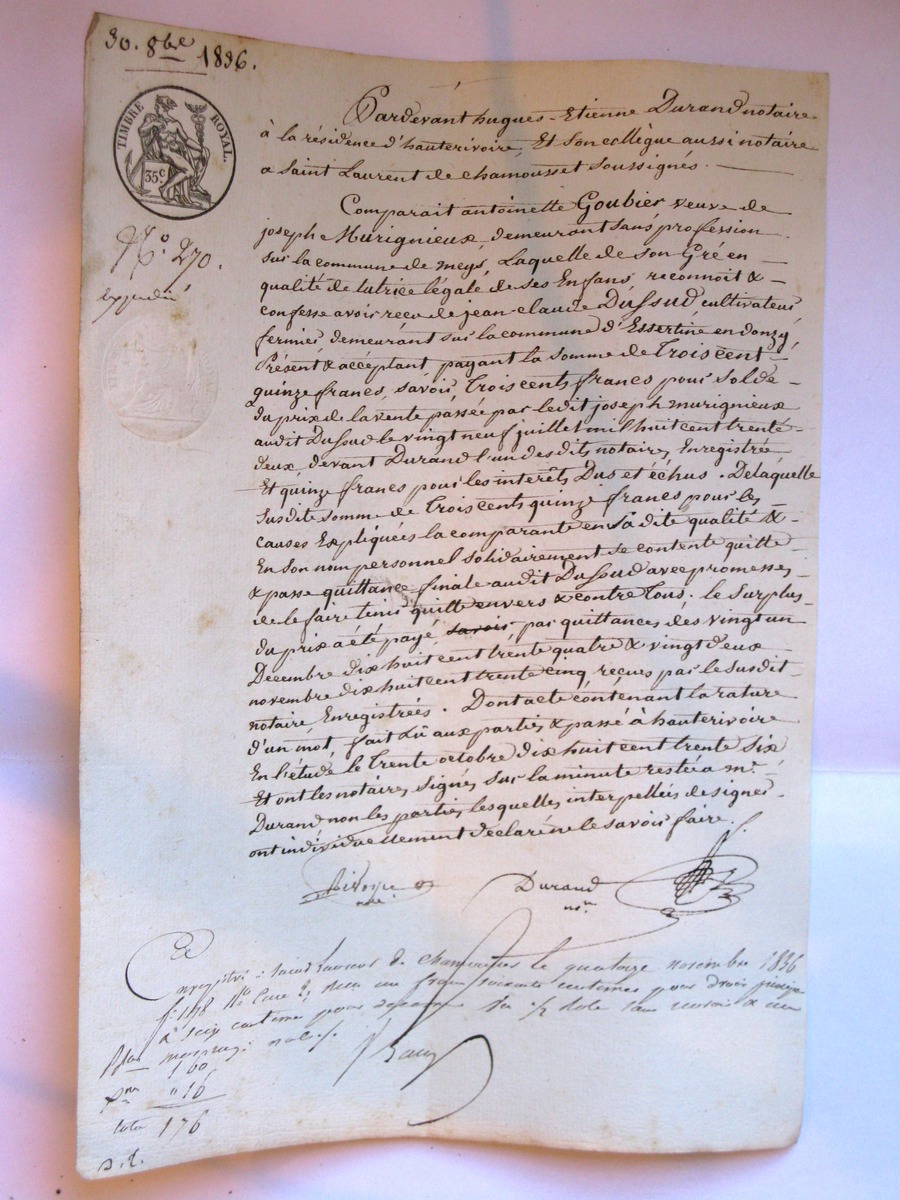 30. 8bre 1836.
TIMBRE ROYAL.
35c
Pardevant hugues-Etienne Durand notaire
à la résidence d'hauterivoire, Et Son collègue aussi notaire
a Saint Laurent de chamousset soussignés.
Comparait antoinette Goubier veuve de
N° 270.
joseph Murignieux, demeurant sans profession
sur la commune de meys, Laquelle de son Gré en
qualité de tutrice légale de ses Enfans, reconnoit &
expédié
confesse avoir reçu de jean-claude Dussud cultivateur
fermier demeurant sur la commune d'Essertine en donzy,
Présent & acceptant, payant la somme de Trois cent
quinze francs, savoir, Trois cents francs pour solde
du prix de la vente passée par ledit joseph murignieux
audit Dussud le vingt neuf juillet mil huit cent trente
deux, devant Durand l'un desdits notaires, Enregistrée,
Et quinze francs pour les interêts Dus et échus. De laquelle
susdite somme de Trois cents quinze francs pour les
causes Expliquées la comparante en sa dite qualité &
En son nom personnel solidairement se contente quitte
& passe quittance finale audit Dussud avec promesse
de le faire tenir quitte envers & contre Tous. le surplus
du prix a été payé savoir par quittances des vingt un
Decembre dix huit cent trente quatre & vingt deux
novembre dix huit cent trente cinq, reçues par le susdit
notaire Enregistrées. Dont acte contenant la rature
d'un mot, fait Lu aux parties & passé à hauterivoire
En l'étude le Trente octobre dix huit cent trente six
Et ont les notaires, signés sur la minute restée a me
Durand non les parties lesquelles interpellées de signer
ont individuellement déclaré ne le savoir faire.
Durand
nre
Enregistré à Saint Laurent de Chamousset le quatorze novembre 1836
fo 148 Reçu un franc soixante centimes pour droit
& seize centimes pour
160
" 16
total 176